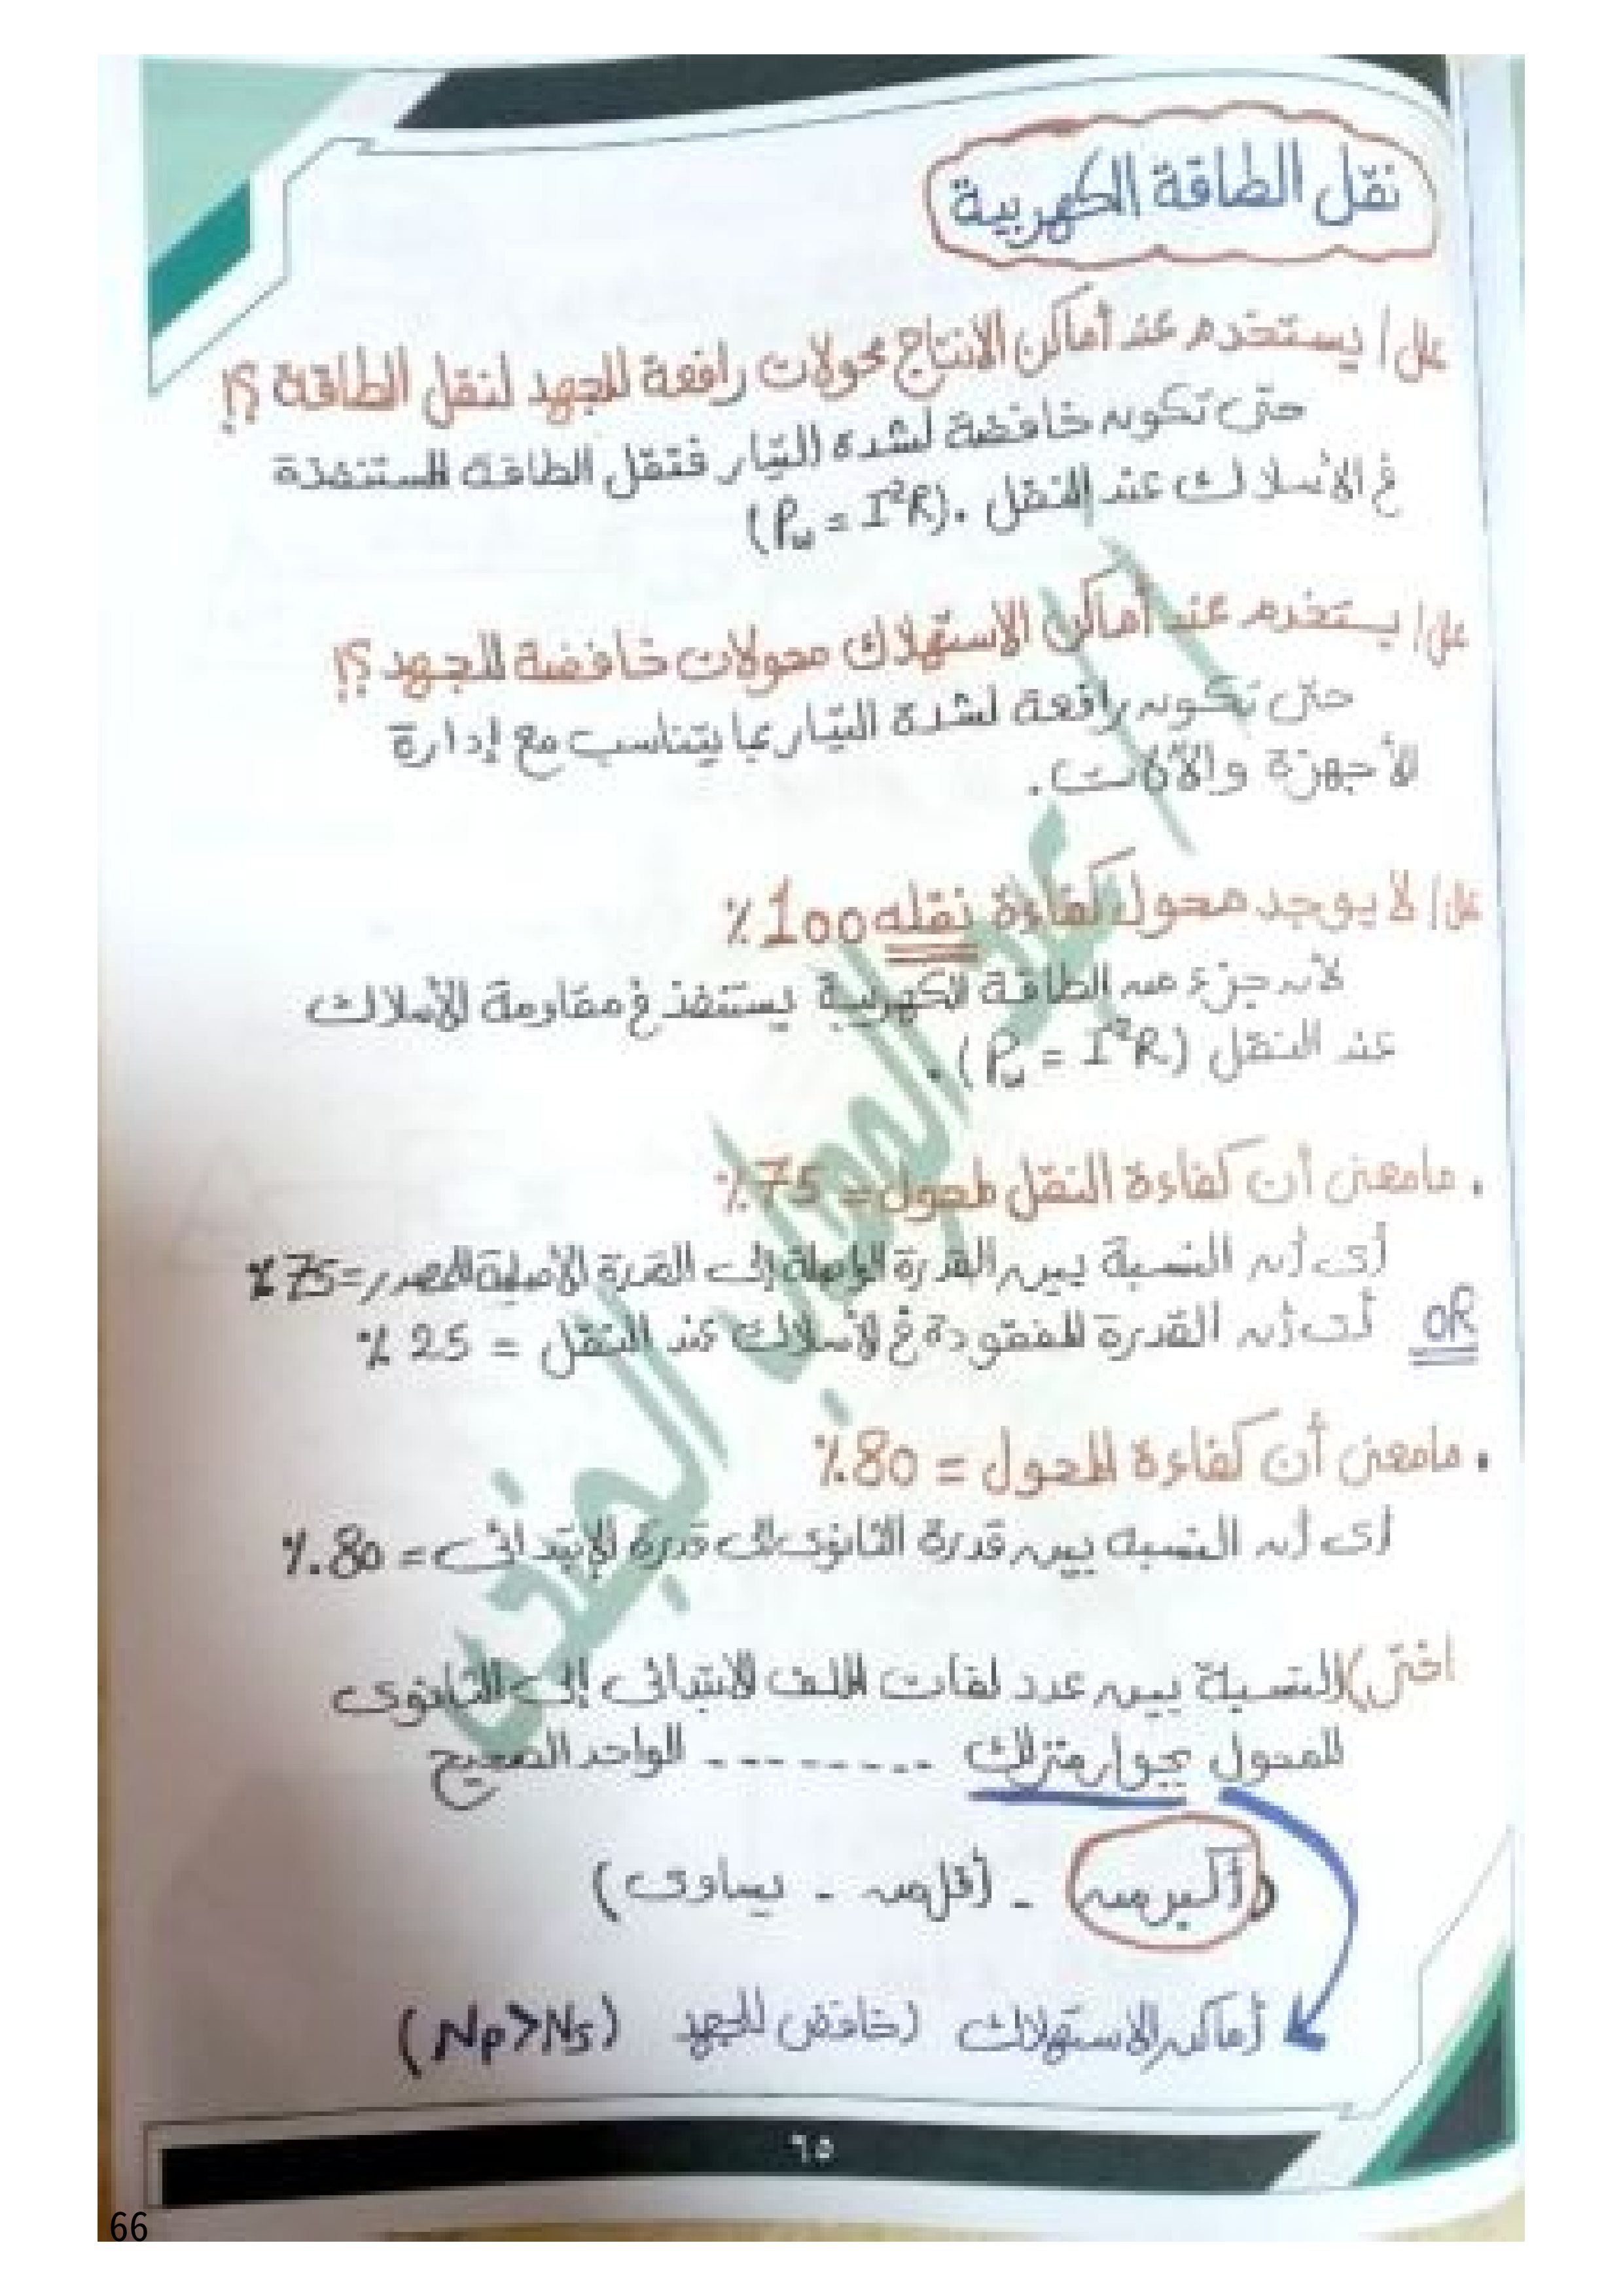 نقل الطاقة الكهربية
علل/ يستخدم عند أماكن الانتاج محولات رافعة للجهد لنقل الطاقة ؟!
حتى تكون خافضة لشدة التيار فتقل الطاقة المستنفذة
فى الأسلاك عند النقل . (Pw = I²R)
علل/ يستخدم عند أماكن الاستهلاك محولات خافضة للجهد ؟!
حتى تكون رافعة لشدة التيار بما يتناسب مع إدارة
الأجهزة والآلات .
علل/ لا يوجد محول كفاءة نقله 100 ٪
لأن جزء من الطاقة الكهربية يستنفذ فى مقاومة الأسلاك
عند النقل (Pw = I²R) .
. مامعنى أن كفاءة النقل لمحول = 75 ٪
أى أن النسبة بين القدرة الواصلة إلى القدرة الأصلية للمصدر = 75 ٪
OR أى أن القدرة المفقودة فى الأسلاك عند النقل = 25 ٪
. مامعنى أن كفاءة المحول = 80 ٪
أى أن النسبة بين قدرة الثانوى إلى قدرة الإبتدائى = 80 ٪
اختر) النسبة بين عدد لفات الملف الابتدائى إلى الثانوى
للمحول بجوار منزلك -------- الواحد الصحيح
(أكبر من - أقل من - يساوى)
أماكن الاستهلاك (خافض للجهد (Np>Ns)
٦٥
66
عبد المعطي